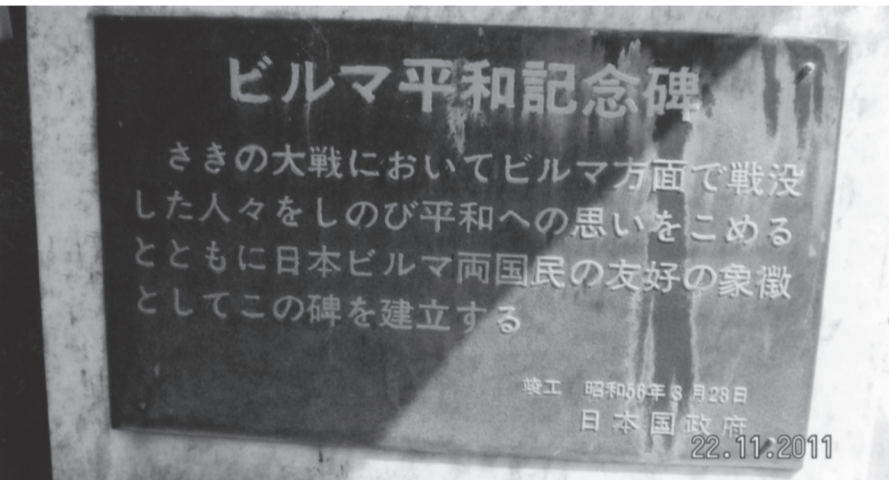 ビルマ平和記念碑
さきの大戦においてビルマ方面で戦没
した人々をしのび平和への思いをこめる
とともに日本ビルマ両国民の友好の象徴
としてこの碑を建立する
竣工 昭和56年3月28日
日本国政府
22.11.2011